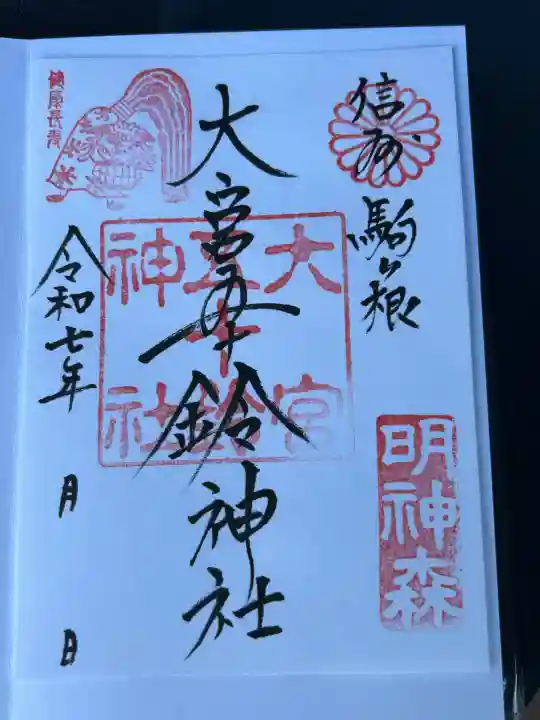 信州
駒ヶ根
明神森
大宮五十鈴神社
大宮
五十鈴
神社
令和七年
月
日